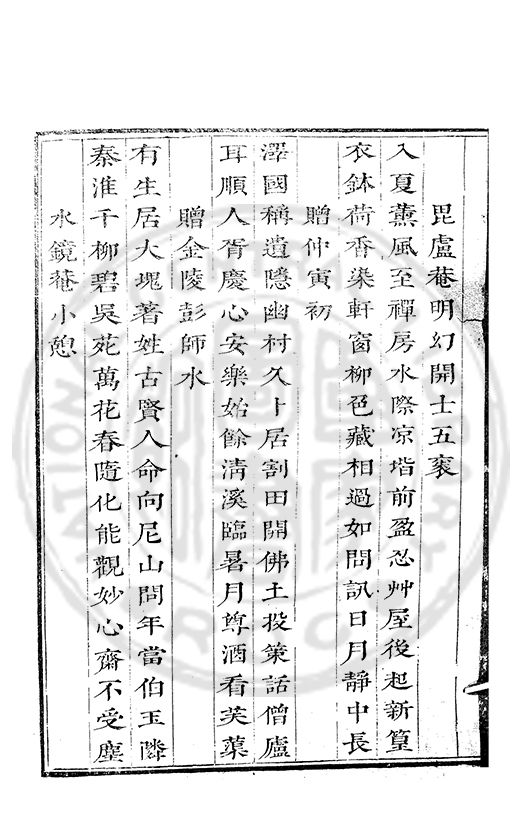 毘盧菴明幻開士五褱
入夏薰風至禪房水際凉堦前盈忍艸屋後起新篁
衣鉢荷香染軒窗柳色藏相過如問訊日月靜中長
贈仲寅初
澤國稱遺隱幽村久卜居割田開佛土投策話僧廬
耳順人胥慶心安樂始餘淸溪臨暑月尊酒看芙蕖
贈金陵彭師水
有生居大塊著姓古賢人命向尼山問年當伯玉隣
秦淮千柳碧吳苑萬花春隨化能觀妙心齋不受塵
水鏡菴小憩